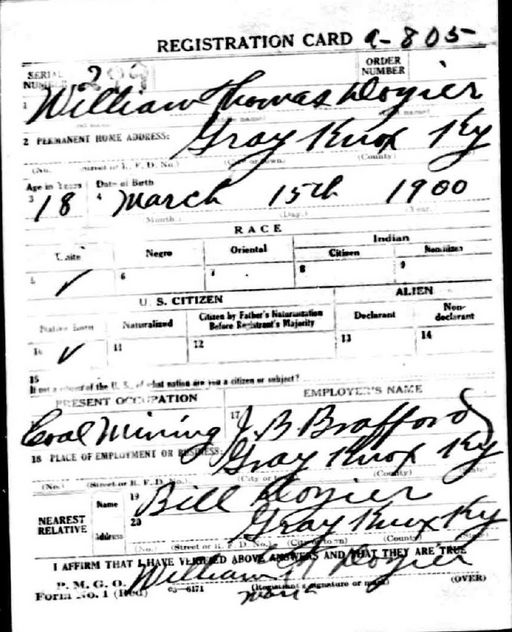 REGISTRATION CARD a-805
SERIAL NUMBER
ORDER NUMBER
1 William Thomas Dozier
2 PERMANENT HOME ADDRESS: Gray Knox Ky
(No.) (Street or R. F. D. No.) (City or town) (County)
Age in Years Date of Birth
3 18 4 March 15th 1900
(Month) (Day) (Year)
RACE
White Negro Oriental Indian
Citizen Noncitizen
5 ✓ 6 7 8 9
U. S. CITIZEN ALIEN
Native Born Naturalized Citizen by Father's Naturalization Before Registrant's Majority Declarant Non-declarant
10 ✓ 11 12 13 14
15
If not a citizen of the U. S., of what nation are you a citizen or subject?
PRESENT OCCUPATION EMPLOYER'S NAME
Coal Mining 17 J. B. Brafford
18 PLACE OF EMPLOYMENT OR BUSINESS: Gray Knox Ky
(No.) (Street or R. F. D. No.) (City or town) (County) (State)
NEAREST RELATIVE
Name 19 Bill Dozier
Address 20 Gray Knox Ky
(No.) (Street or R. F. D. No.) (City or town) (County) (State)
I AFFIRM THAT I HAVE VERIFIED ABOVE ANSWERS AND THAT THEY ARE TRUE
P. M. G. O.
Form No. 1 (Red) 03-6171 William Dozier
(Registrant's signature or mark) (OVER)
mark